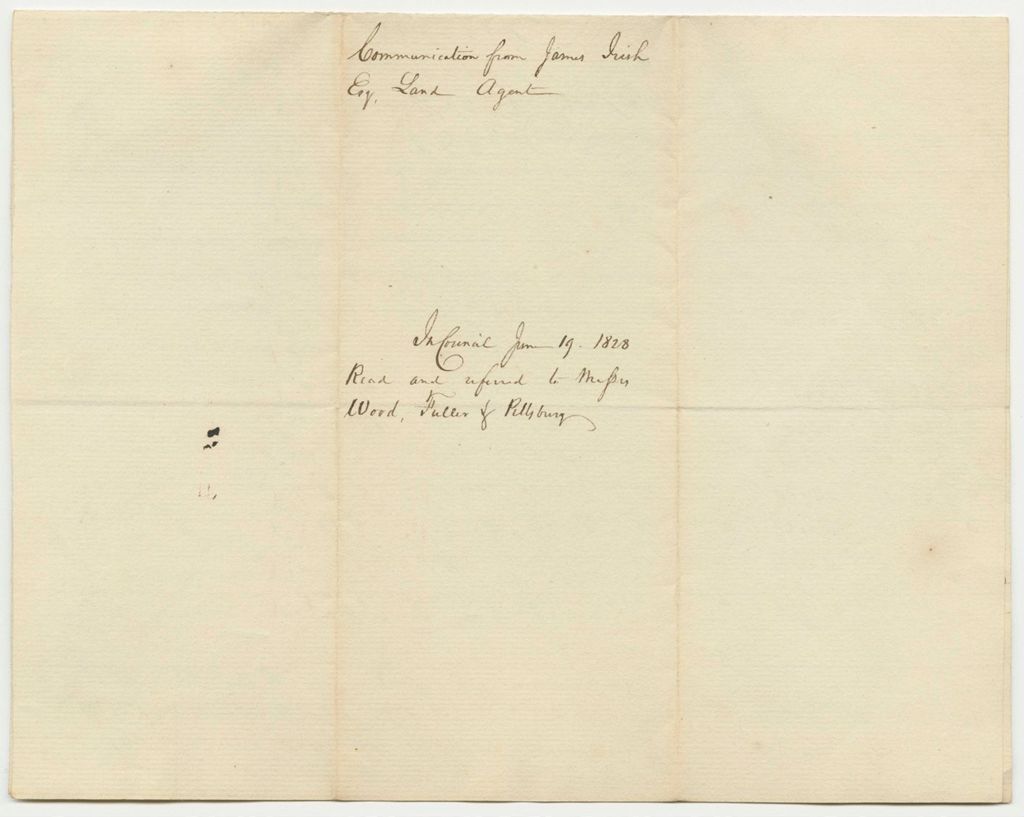 Communication from James Irish
Esq, Land Agent
In Council June 19. 1828
Read and referred to Messrs
Wood, Fuller & Pillsbury